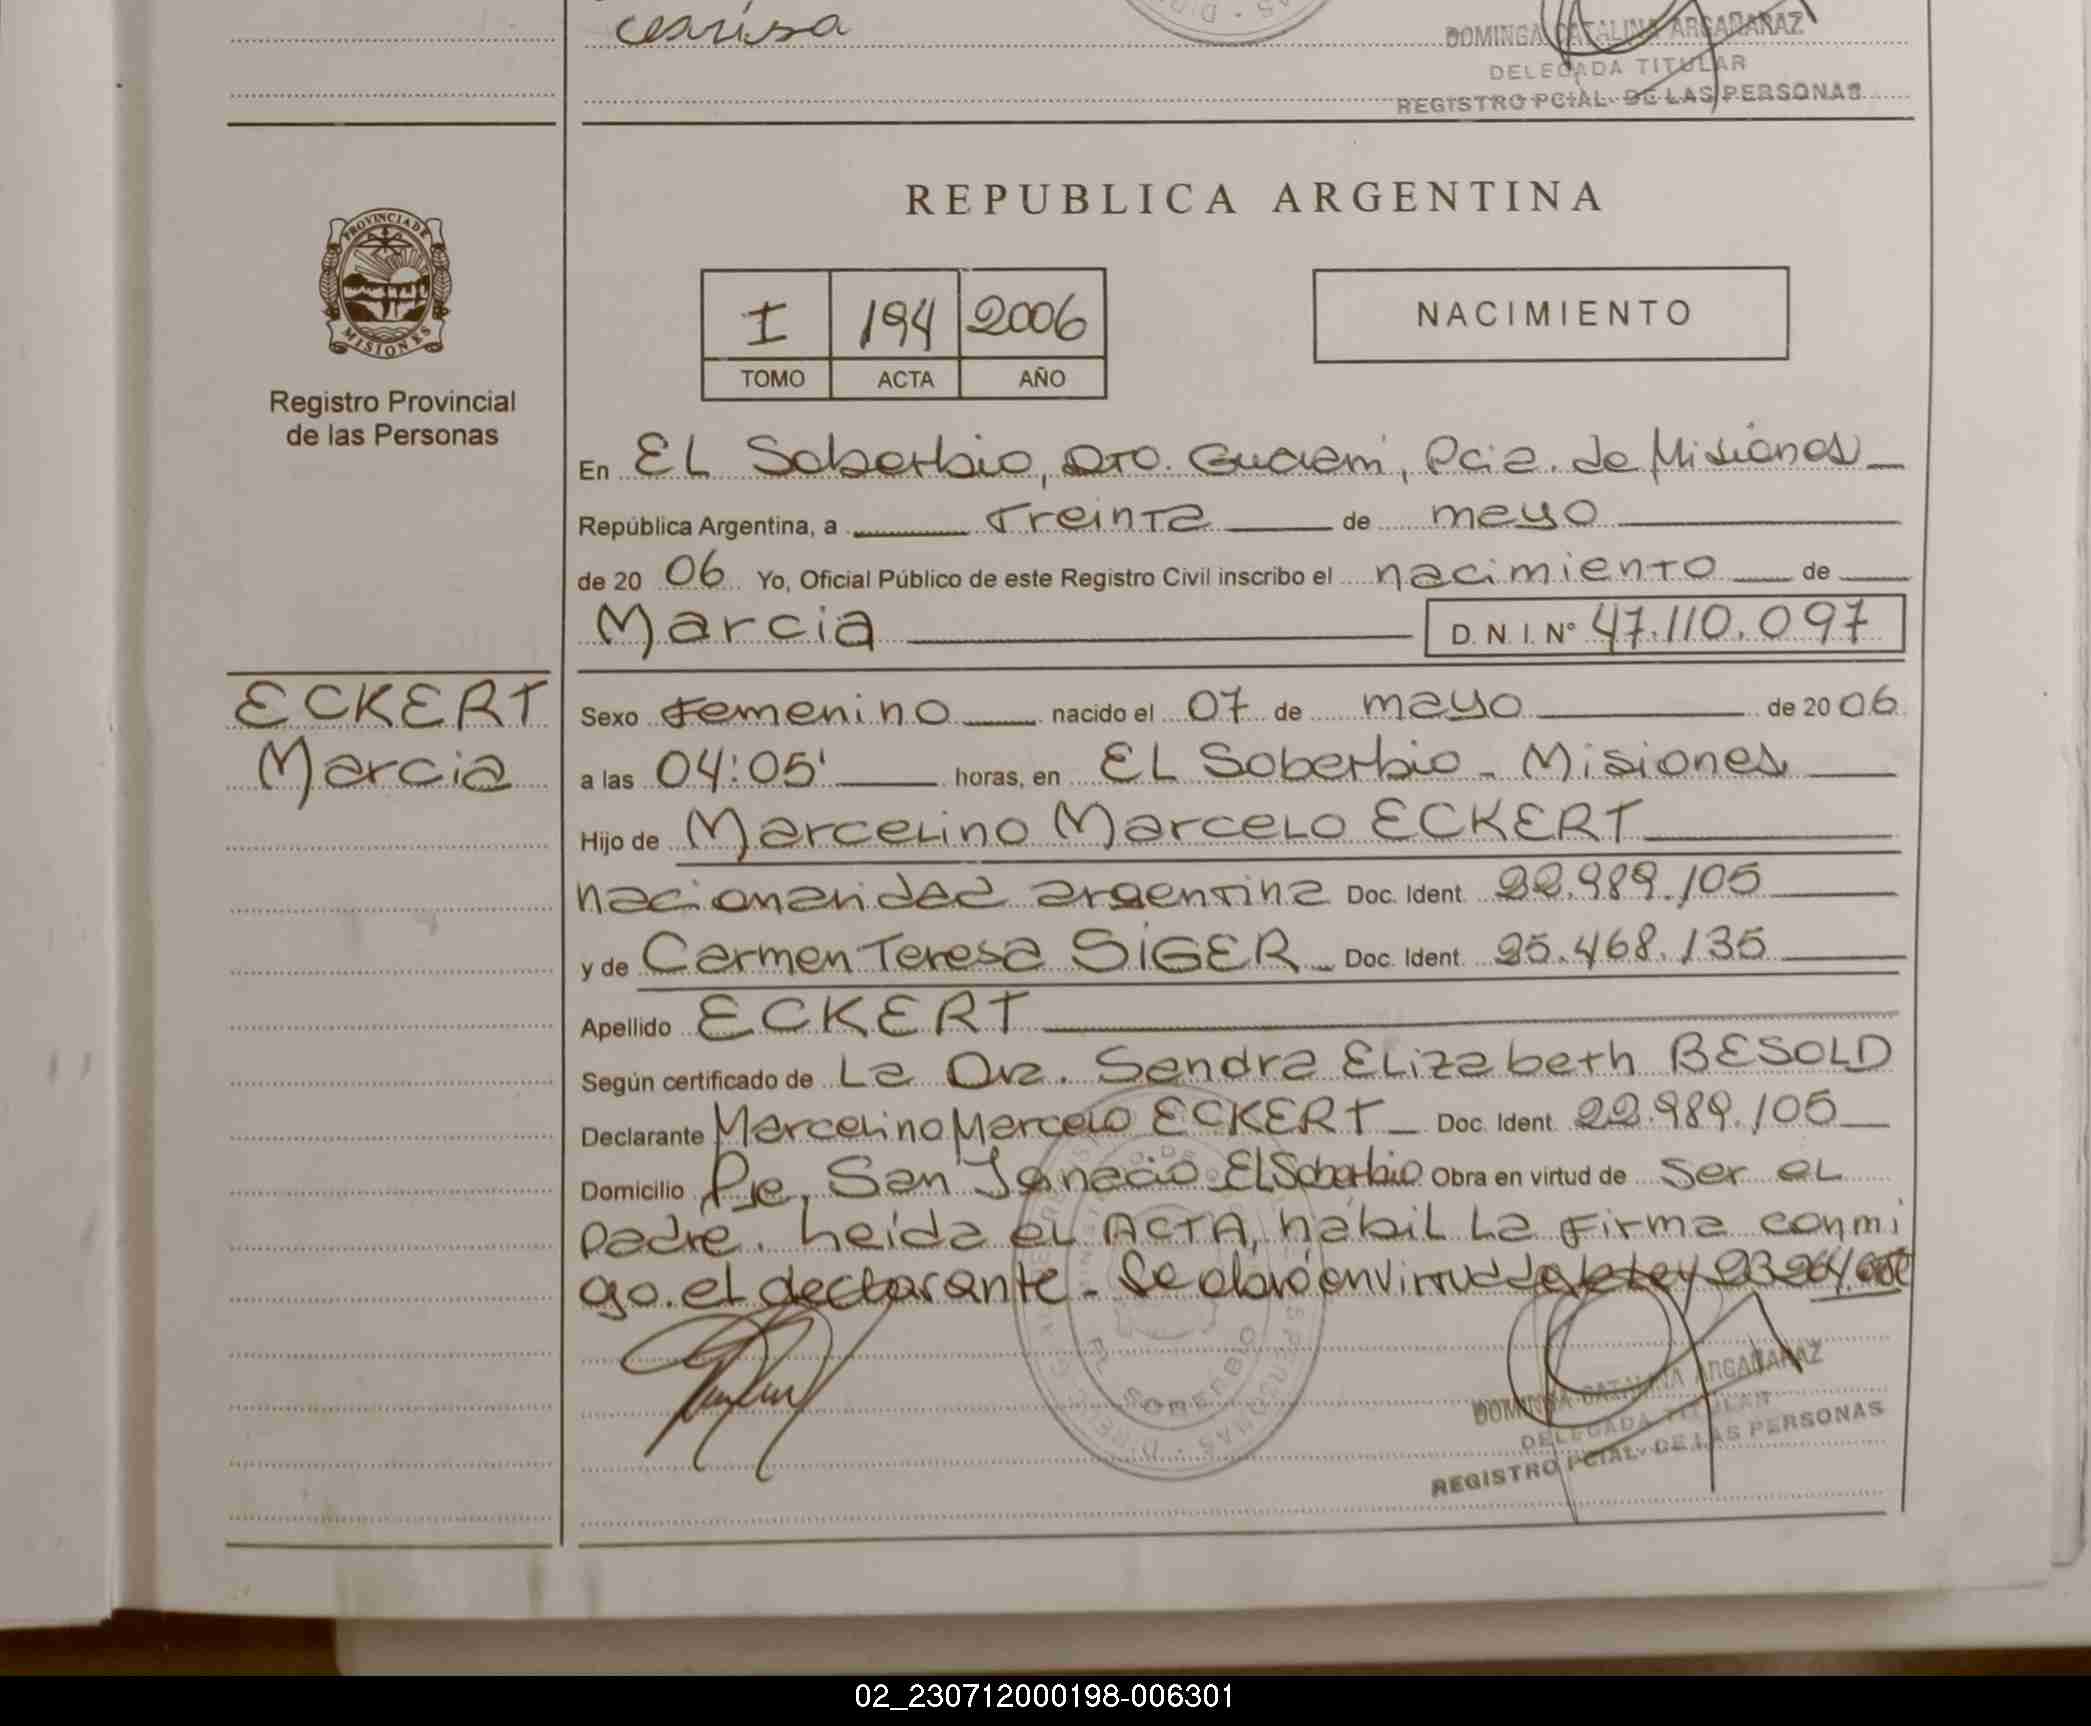 cearisa
DOMINGA CATALINA ARGAÑARAZ
DELEGADA TITULAR
REGISTRO PCIAL. DE LAS PERSONAS
PROVINCIA DE
MISIONES
Registro Provincial
de las Personas
ECKERT
Marcia
REPUBLICA ARGENTINA
I 194 2006
TOMO ACTA AÑO
NACIMIENTO
En EL Soberbio, DTO. Guaraní, Pcia. de Misiones
República Argentina, a Treinta de mayo
de 20 06 Yo, Oficial Público de este Registro Civil inscribo el nacimiento de
Marcia D.N.I. N° 47.110.097
Sexo Femenino nacido el 07 de mayo de 20 06
a las 04:05' horas, en EL Soberbio - Misiones
Hijo de Marcelino Marcelo ECKERT
nacionalidad argentina Doc. Ident. 22.989.105
y de Carmen Teresa SIGER Doc. Ident. 25.468.135
Apellido ECKERT
Según certificado de La Dra. Sandra Elizabeth BESOLD
Declarante Marcelino Marcelo ECKERT Doc. Ident. 22.989.105
Domicilio Pje. San Ignacio El Soberbio Obra en virtud de Ser el
padre. Leída el ACTA, hábil La firma conmi
go. el declarante. Se obró en virtud de la Ley 23.264
EL SOBERBIO
DOMINGA CATALINA ARGAÑARAZ
DELEGADA TITULAR
REGISTRO PCIAL. DE LAS PERSONAS
02_230712000198-006301